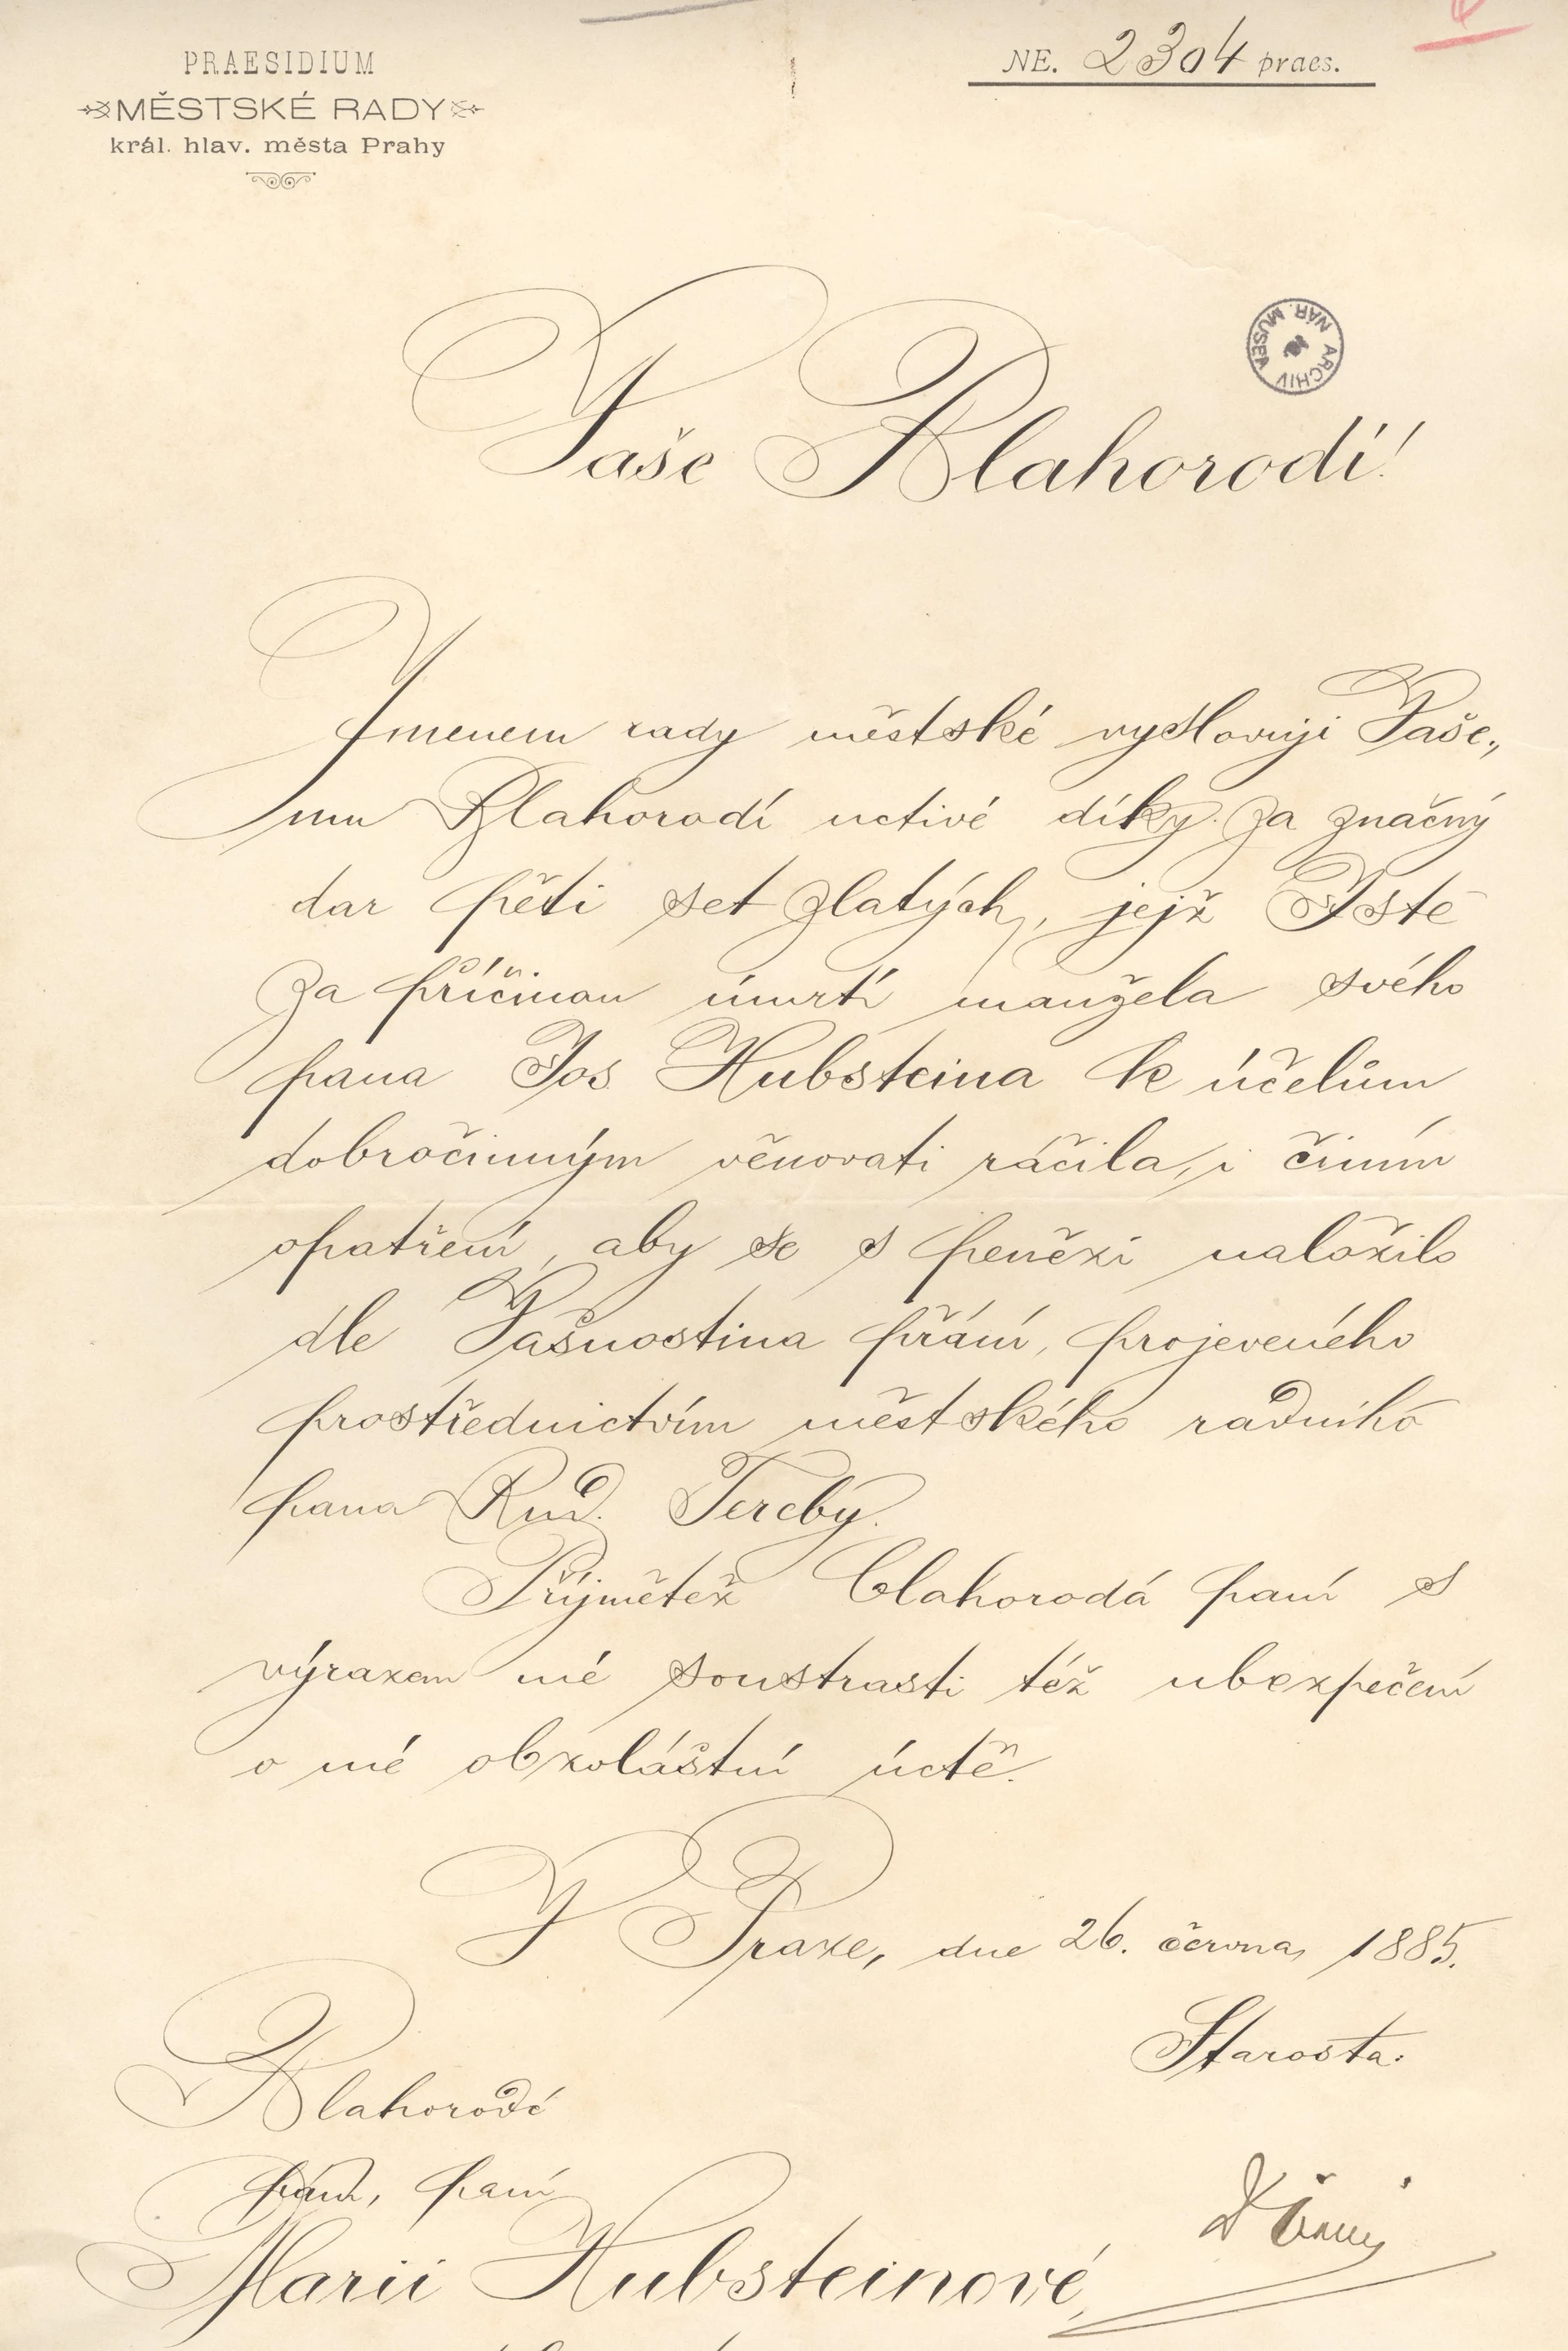 PRAESIDIUM
MĚSTSKÉ RADY
král. hlav. města Prahy
NE. 2304 praes.
ARCHIV NÁR. MUSEA
Vaše Blahorodí!
Jmenem rady městské vyslovuji Vaše„
mu Blahorodí uctivé díky za značný
dar pěti set zlatých, jejž Jste
za příčinou úmrtí manžela svého
pana Jos Hubsteina k účelům
dobročinným věnovati ráčila, i činím
opatření, aby se s penězi naložilo
dle Vašnostina přání, projeveného
prostřednictvím městského radního
pana Rud. Tereby.
Přijmětež blahorodá paní s
výrazem mé soustrasti též ubezpečení
o mé obzoláštní úctě.
V Praze, dne 26. června 1885.
Starosta:
Blahorodé
paní, paní
Marii Hubsteinové,
Dr Černý